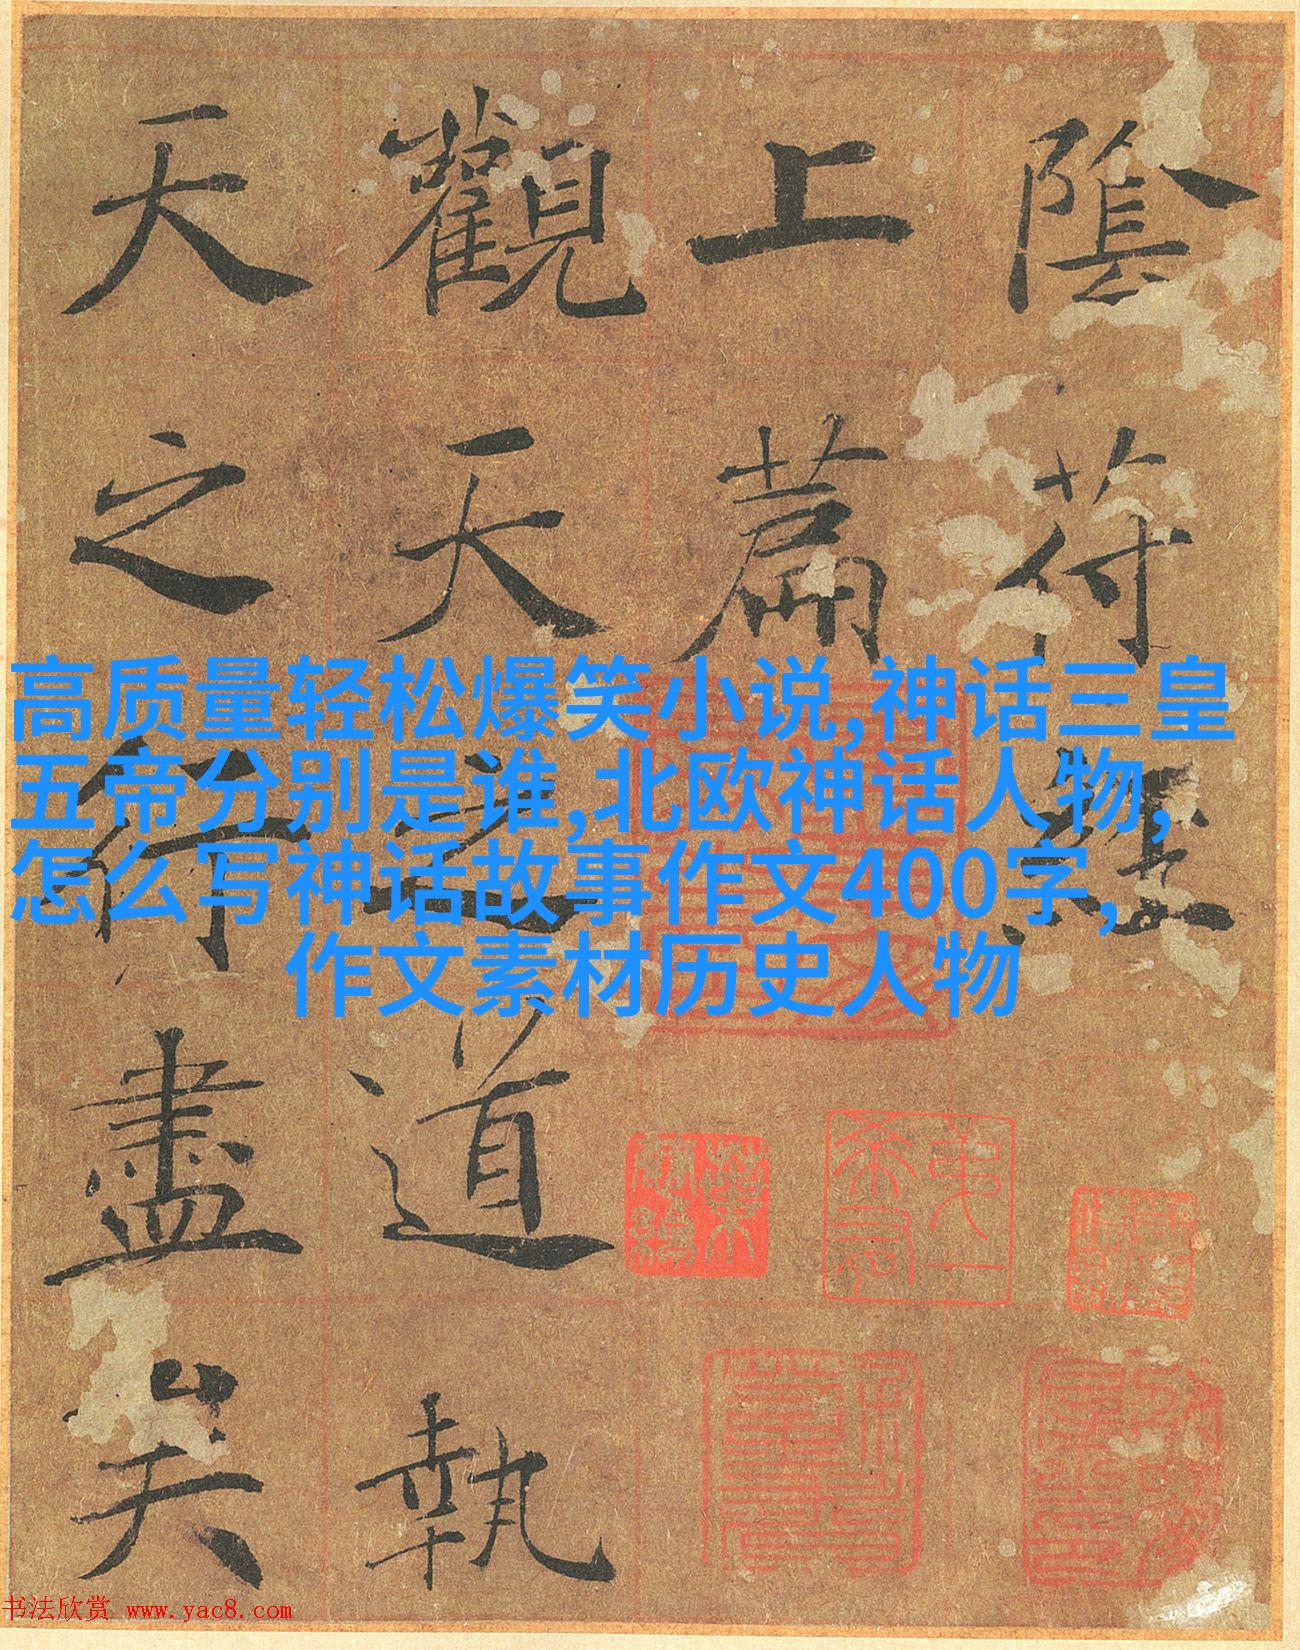 陰符經
上篇
觀天之道執
天之行盡矣
高质量轻松爆笑小说,神话三皇
五帝分别是谁,北欧神话人物,
怎么写神话故事作文400字,
作文素材历史人物
书法欣赏 www.yac8.com